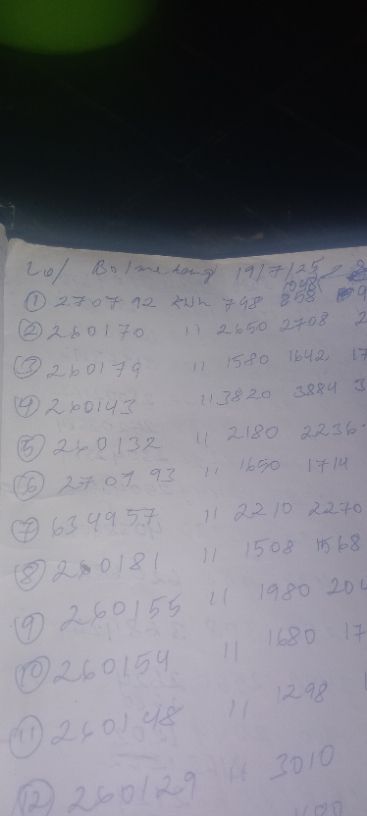 19/7/25
① 270792 748 858
② 260170 11 2650 2708 2
③ 260179 11 1580 1642 17
④ 260143 11 3820 3884 3
⑤ 260132 11 2180 2236
⑥ 270793 11 1650 1714
⑦ 634957 11 2210 2270
⑧ 260181 11 1508 1568
⑨ 260155 11 1980 204
⑩ 260154 11 1680 17
⑪ 260148 11 1298
⑫ 260129 11 3010